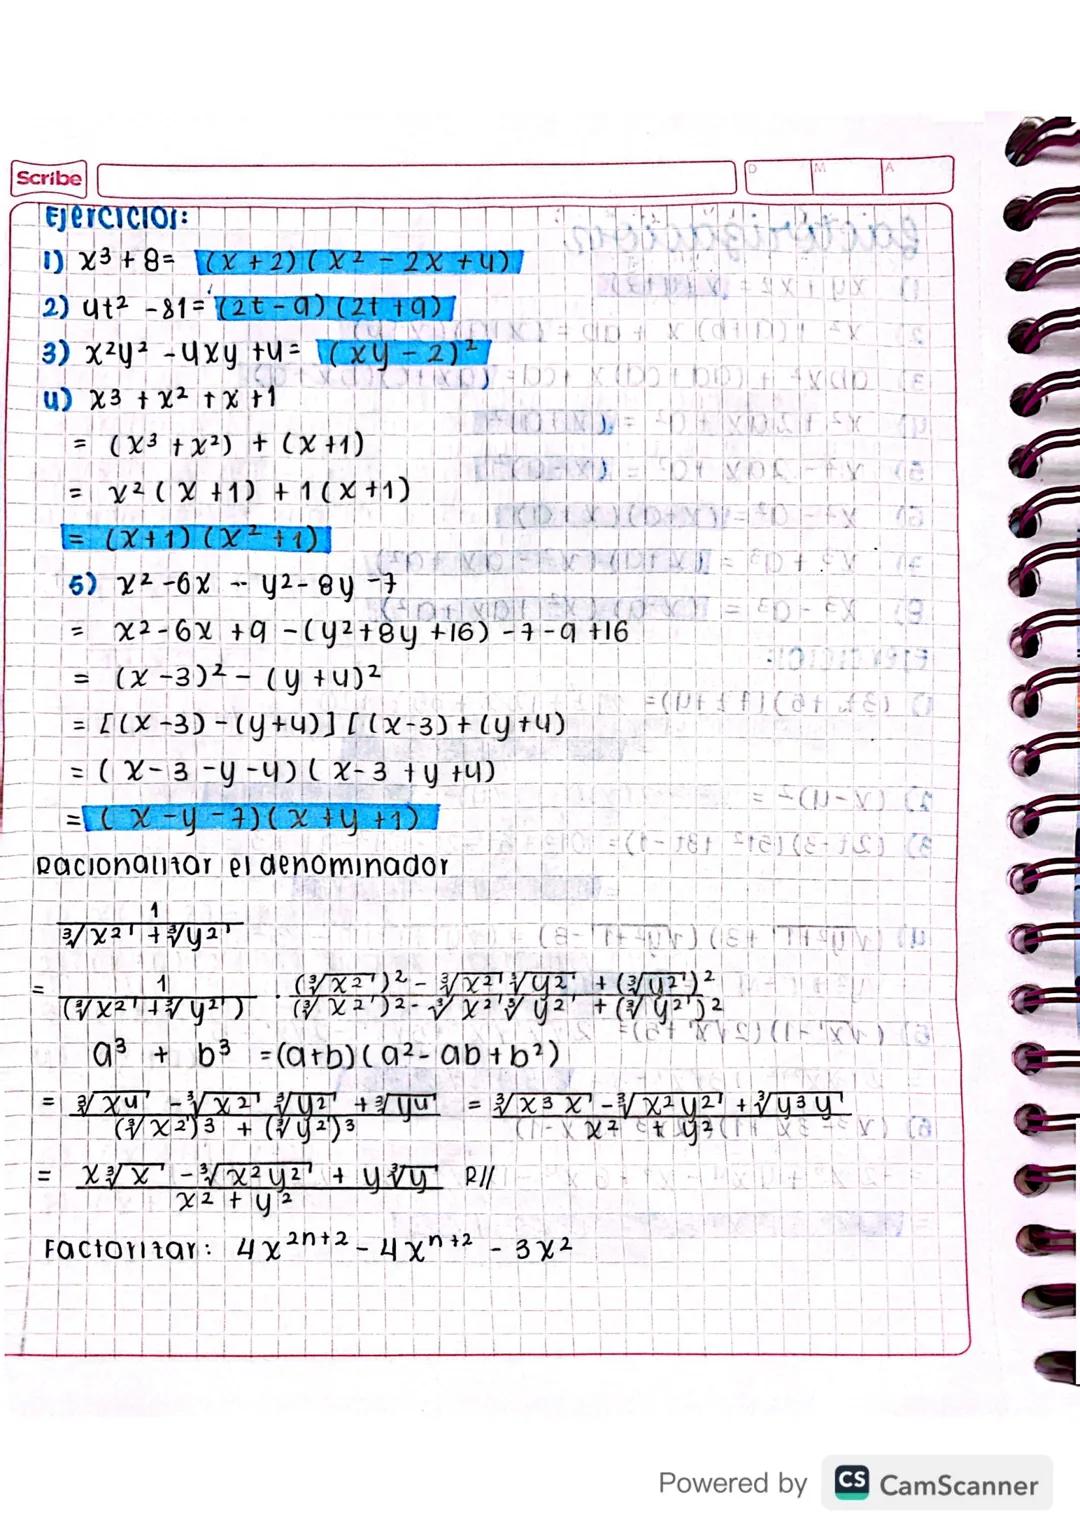 Scribe
D M A
Ejercicios:
1) x³ + 8 = (x + 2) (x² - 2x + 4)
2) 4t² - 81 = (2t - 9) (2t + 9)
3) x²y² - 4xy + 4 = (xy - 2)²
4) x³ + x² + x + 1
= (x³ + x²) + (x + 1)
= x² (x + 1) + 1 (x + 1)
= (x + 1) (x² + 1)
5) x² - 6x - y² - 8y - 7
= x² - 6x + 9 - (y² + 8y + 16) - 7 - 9 + 16
= (x - 3)² - (y + 4)²
= [(x - 3) - (y + 4)] [(x - 3) + (y + 4)
= (x - 3 - y - 4) (x - 3 + y + 4)
= (x - y - 7) (x + y + 1)
Racionalizar el denominador
1 / (∛x² + ∛y²)
= 1 / (∛x² + ∛y²) · ((∛x²)² - ∛x² ∛y² + (∛y²)²) / ((∛x²)² - ∛x² ∛y² + (∛y²)²)
a³ + b³ = (a + b) (a² - ab + b²)
= (∛x4 - ∛x² ∛y² + ∛y4) / ((∛x²)³ + (∛y²)³) = (∛x³ x - ∛x² y² + ∛y³ y) / (x² + y²)
= (x∛x - ∛x² y² + y∛y) / (x² + y²) R//
Factorizar: 4x²ⁿ⁺² - 4xⁿ⁺² - 3x²
Powered by CS CamScanner